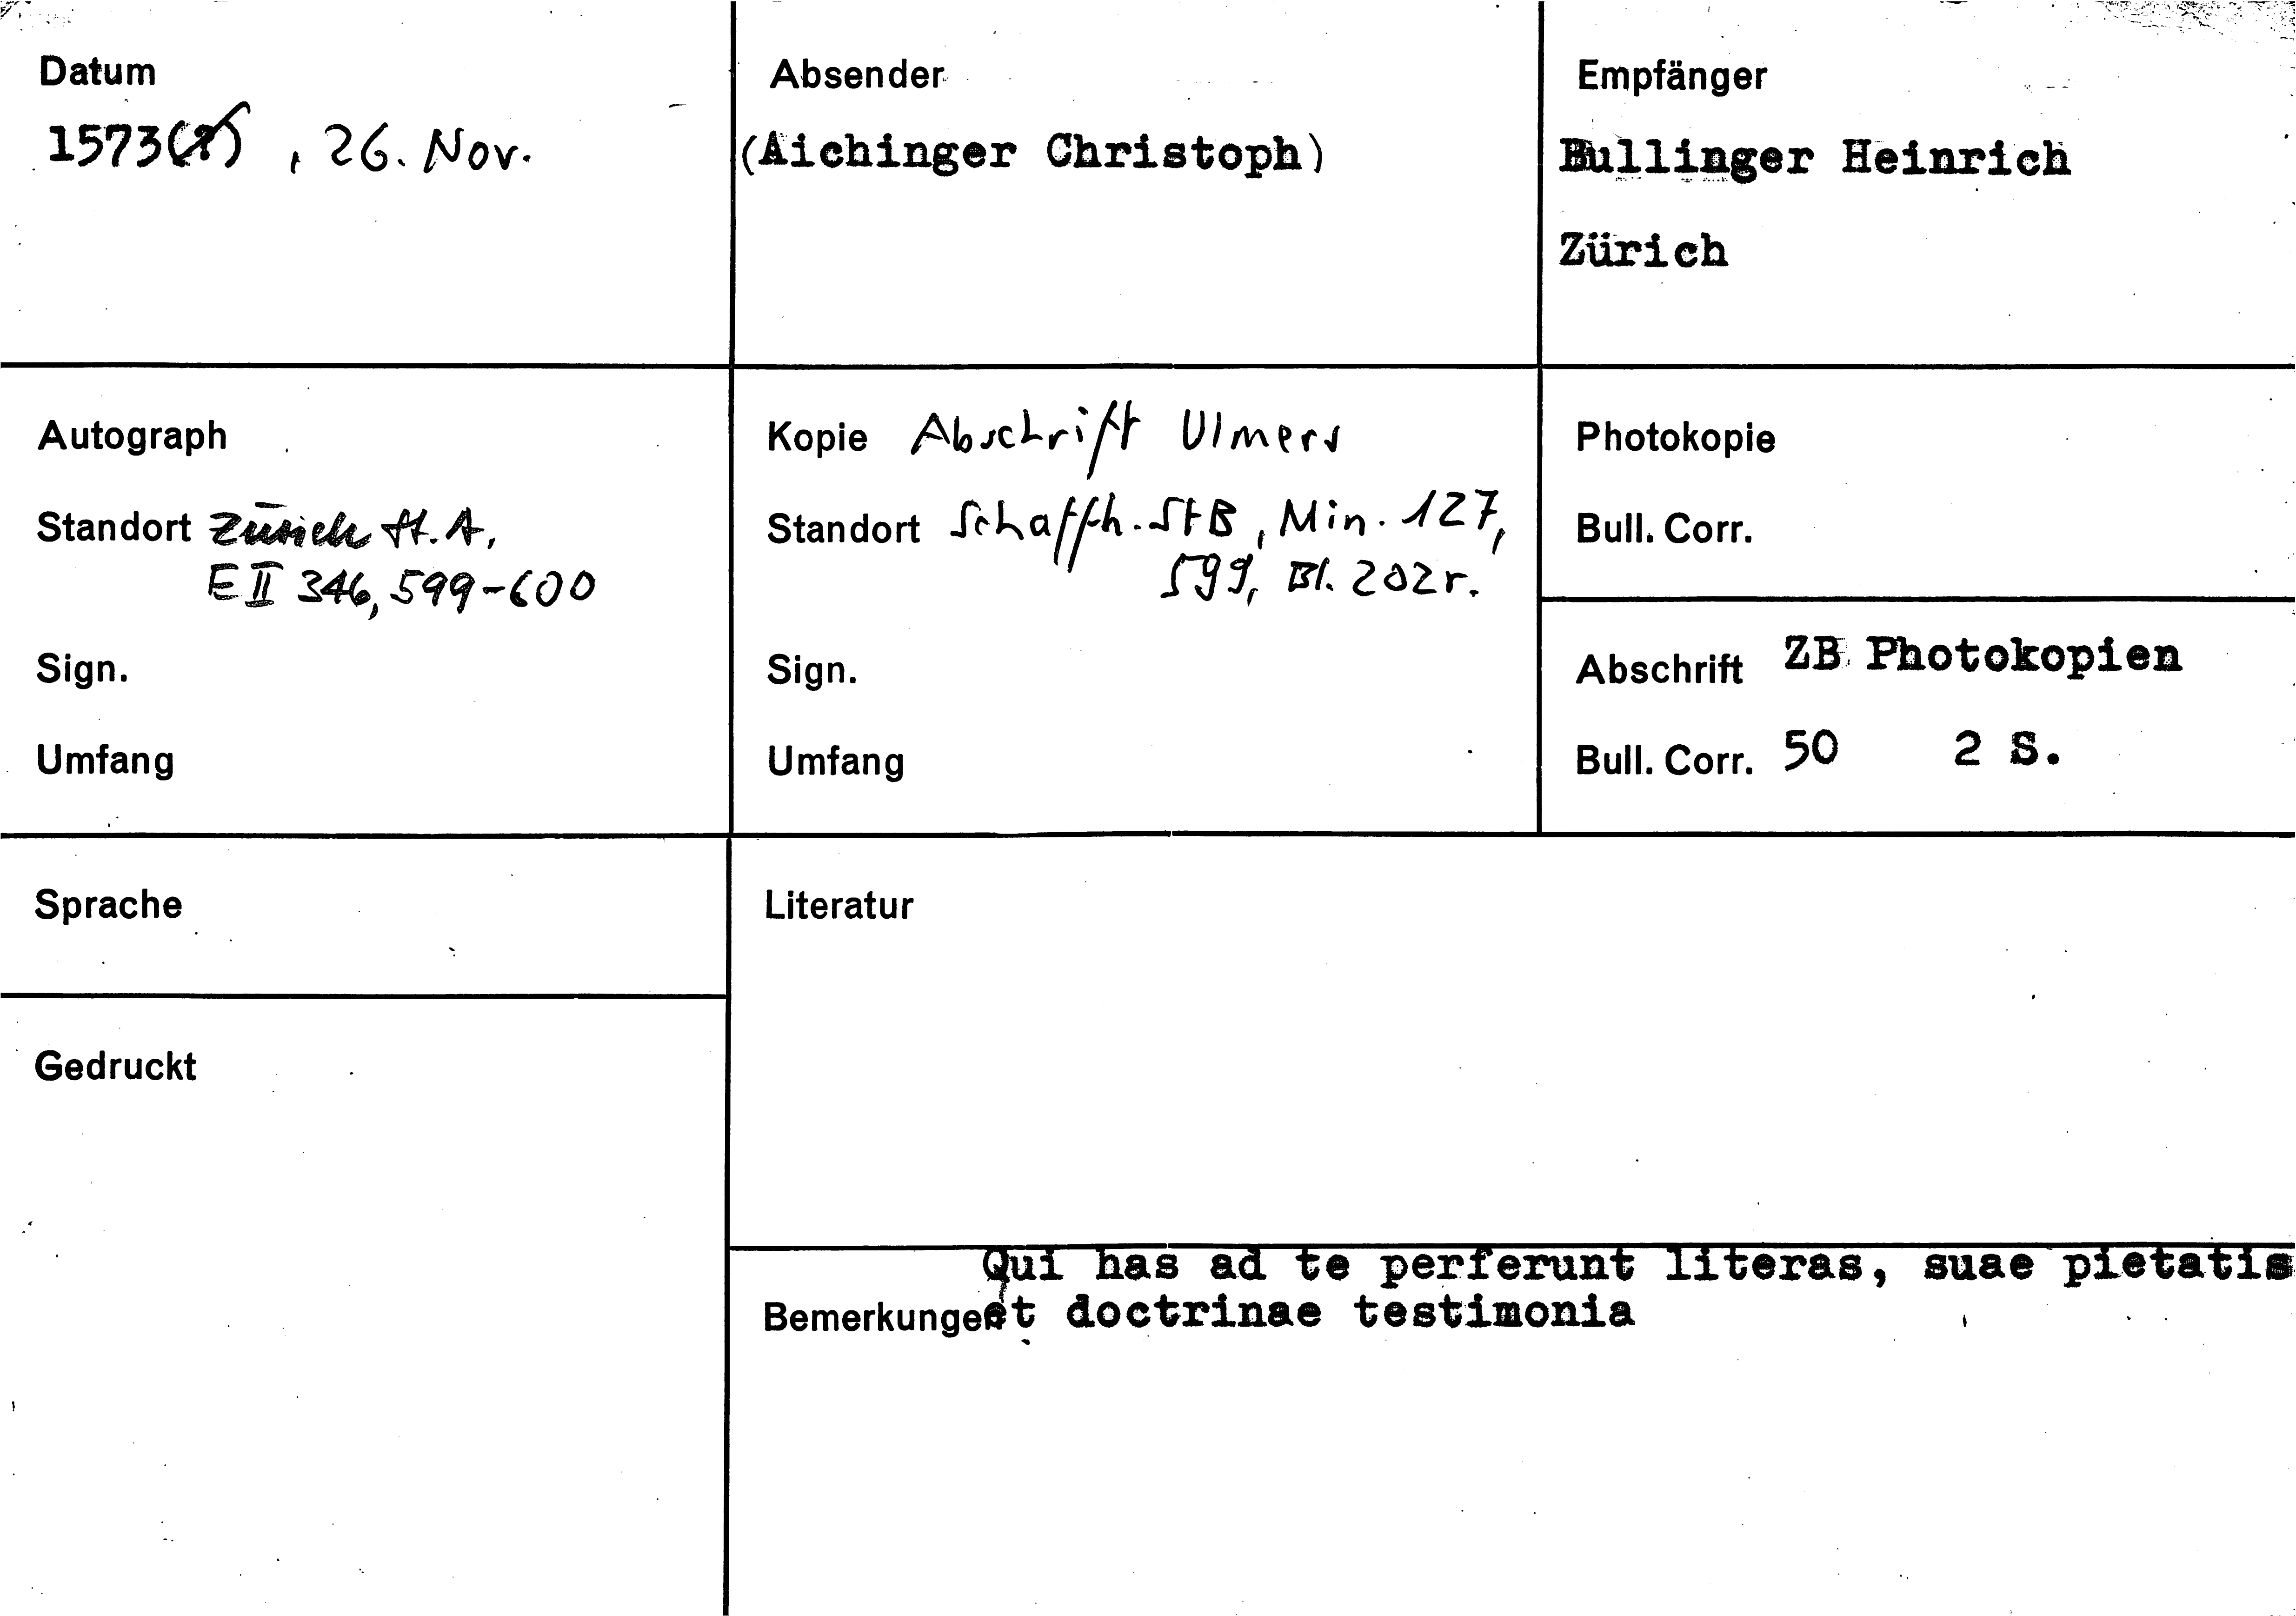 Datum
1573(?), 26. Nov.
Absender
(Aichinger Christoph)
Empfänger
Bullinger Heinrich
Zürich
Autograph
Standort Zürich St. A,
E II 346, 599-600
Sign.
Umfang
Kopie Abschrift Ulmers
Standort Schaffh. StB, Min. 127,
599, Bl. 202r.
Sign.
Umfang
Photokopie
Bull. Corr.
Abschrift ZB Photokopien
Bull. Corr. 50 2 S.
Sprache
Literatur
Gedruckt
Qui has ad te perferunt literas, suae pietatis
Bemerkungen et doctrinae testimonia